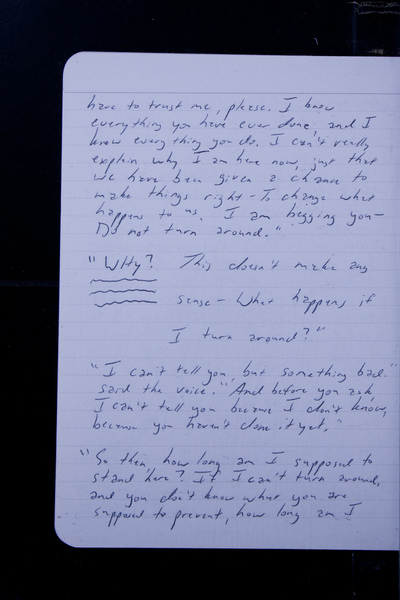 have to trust me, please. I know
everything you have ever done, and I
know everything you do. I can't really
explain why I am here now, just that
we have been given a chance to
make things right - To change what
happens to us. I am begging you -
Do not turn around."
"WHy? This doesn't make any
sense - What happens if
I turn around?"
"I can't tell you, but something bad."
said the voice. "And before you ask,
I can't tell you because I don't know,
because you haven't done it yet."
"So then, how long am I supposed to
stand here? If I can't turn around,
and you don't know what you are
supposed to prevent, how long am I